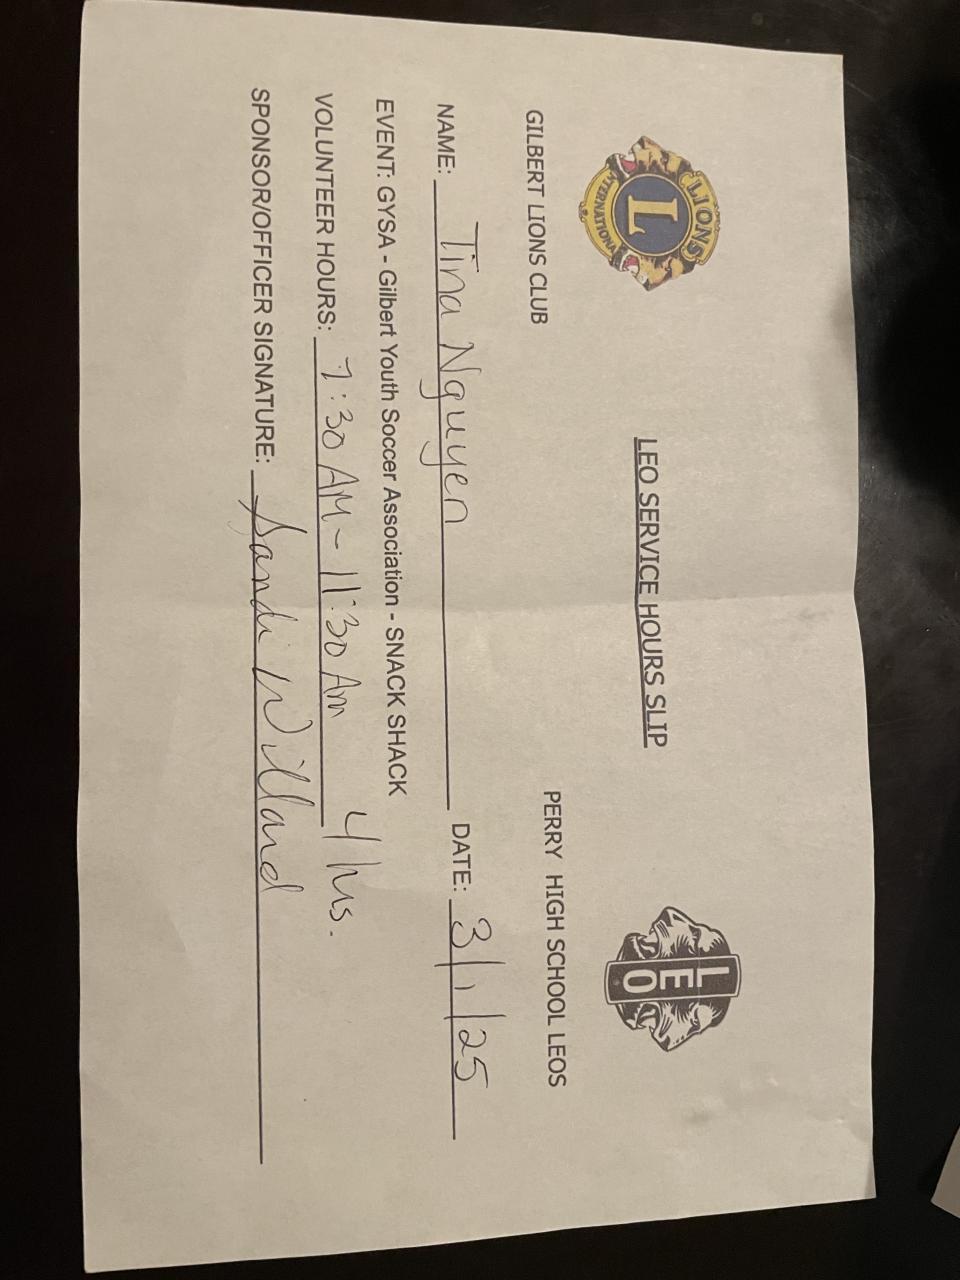 LIONS
L
INTERNATIONAL
LEO SERVICE HOURS SLIP
LEO
GILBERT LIONS CLUB PERRY HIGH SCHOOL LEOS
NAME: Tina Nguyen DATE: 3/1/25
EVENT: GYSA - Gilbert Youth Soccer Association - SNACK SHACK
VOLUNTEER HOURS: 7:30 AM - 11:30 Am 4 hrs.
SPONSOR/OFFICER SIGNATURE: Sandi Willard